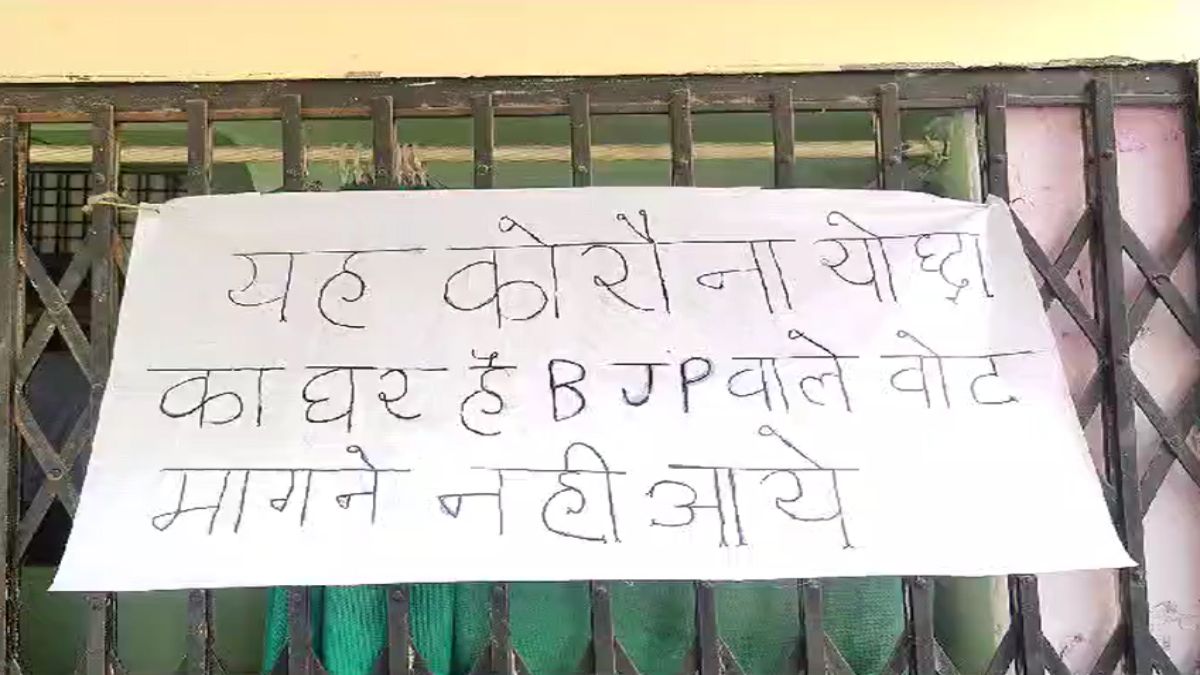 यह कोरौना योद्धा
का घर है BJP वाले वोट
मागने नही आये